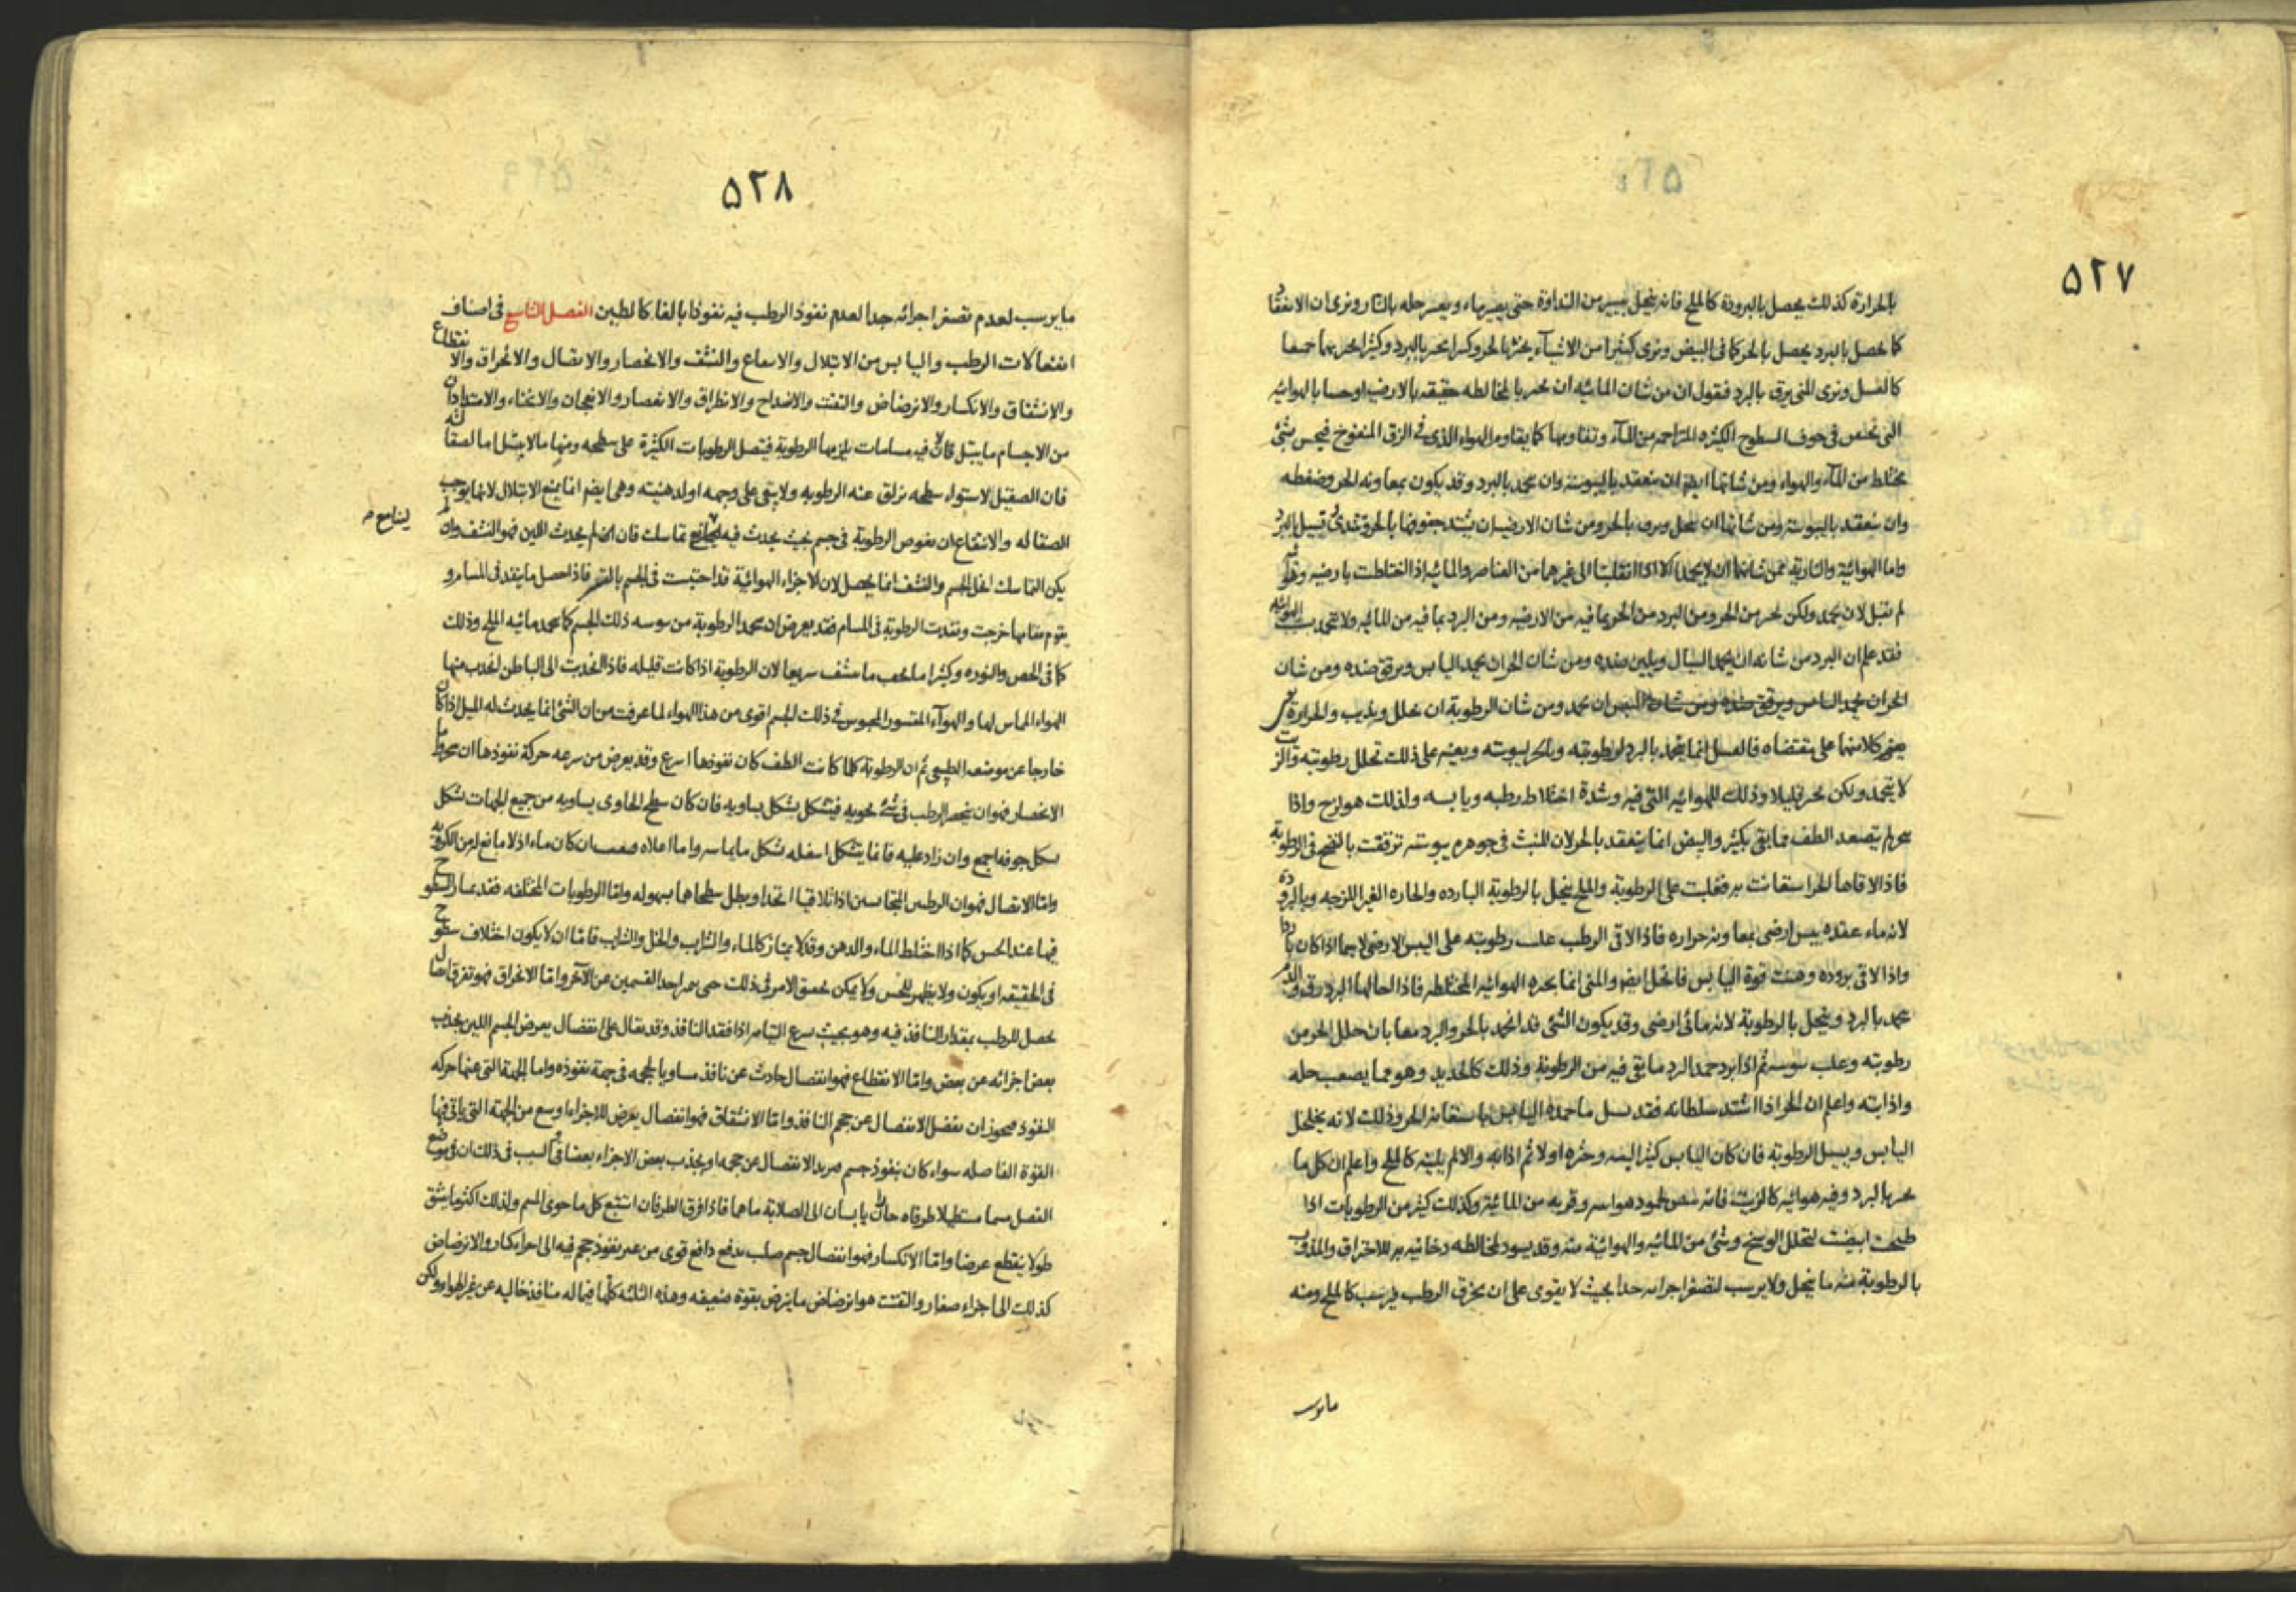 ٥٢٧
بالحرارة كذلك يحصل بالبرودة كالملح فانه ينحل بيسير من النداوة حتى يصير ماء ويعسر حله بالنار ونرى ان الانعقاد
كما يحصل بالبرد يحصل بالحر كما فى البيض ونرى كثيرا من الاشياء يخثر بالحر وكثيرا يخثر بالبرد وكثيرا يخثر بهما جمعا
كالعسل ونرى المنى يرق بالبرد فنقول ان من شان المائيه ان يخثر بالمخالطه حقيقه بالارضيه او حسا بالهوائيه
التى تحتبس فى جوف السطوح الكثيره المتزاحمه من الماء وتقاومها كما يقاوم الهواء الذى فى الزق المنفوخ فيحس بشئ
مختلط من الماء والهواء ومن شانها ايضا ان ينعقد باليبوسة وان يجمد بالبرد وقد يكون بمعاونه الحر وضغطه
وان ينعقد باليبوسة ومن شانها ان ينحل ويرق بالحر ومن شان الارضيه ان يشتد جفوفها بالحر
واما الهوائية والنارية فمن شانهما ان لا يجمدا الا اذا انقلبتا الى غيرهما من العناصر والمائيه اذا اختلطت بارضيه وهوائيه
لم تقبل لان يجمد ولكن يخثر من الحر ومن البرد من الحر بما فيه من الارضيه ومن البرد بما فيه من المائيه ولا يتجمد بسبب الهوائيه
فقد علم ان البرد من شانه ان يجمد السيال ويلين ضده ومن شان الحر ان يجمد اليابس ويرقق ضده ومن شان
الحر ان يجمد اليابس ويرقق ضده ومن شان اليبس ان يجمد ومن شان الرطوبة ان تحلل ويذيب والحرارة
يعين كلا منهما على مقتضاه فالعسل انما يتجمد بالبرد لرطوبته وبالحر ليبوسته ويعينه على ذلك تحلل رطوبته والزيت
لا يتجمد ولكن يخثر قليلا وذلك للهوائيه التى فيه وشدة اختلاط رطبه ويابسه ولذلك هو لزج واذا
خثر لم يتصعد الطف مما بقى بكثير والبيض انما ينعقد بالحر لان المنبث فى جوهره يبوسته ترققت بالنضج فى الرطوبة
فاذا لاقاها الحر استعانت به فغلبت على الرطوبة والملح ينحل بالرطوبة البارده والحاره الغير اللزجه وبالبرودة
لانه ماء عقده يبس ارضى بمعاونه حراره فاذا لاقى الرطب غلب رطوبته على اليبس الارضى لا سيما اذا كان باردا
واذا لاقى بروده وهنت قوة اليابس فانحل ايضا والمنى انما يخثره الهوائيه المختلطه فاذا احالها البرد رق والدم
يجمد بالبرد وينحل بالرطوبة لانه مائى ارضى وقد يكون الشئ قد انجمد بالحر والبرد معا بان حلل الحر من
رطوبته وغلب يبوسته ثم اذا برد جمد البرد ما بقى فيه من الرطوبة وذلك كالحديد وهو مما يصعب حله
واذابته واعلم ان الحر اذا اشتد سلطانه فقد يسيل ما جمده اليابس باستعانة الحر وذلك لانه يخلخل
اليابس ويسيل الرطوبة فان كان اليابس كثيرا لينه وخثره اولا ثم اذابه والا لم يلينه كالملح واعلم ان كل ما
يخثر بالبرد وفيه هوائيه كالزيت فانه يبيض لجمود هوائيته وقربه من المائية وكذلك كثير من الرطوبات اذا
طبخت ابيضت لتحلل الوسخ وشئ من المائيه والهوائية منه وقد يسود لمخالطه دخانيه به للاحتراق والمذوب
بالرطوبة منه ما ينحل ولا يرسب لتصغر اجزائه جدا بحيث لا يقوى على ان يخرق الرطب فيرسب كالملح ومنه
ما يرسب
٥٢٨
ما يرسب لعدم تصغر اجزائه جدا لعدم نفوذ الرطب فيه نفوذا بالغا كالطين الفصل التاسع فى اصناف
انفعالات الرطب واليابس من الابتلال والانتقاع والنشف والانحصار والاتصال والانخراق والانقطاع
والانشقاق والانكسار والانرضاض والتفتت والانشداخ والانطراق والانعصار والانعجان والانحناء والامتداد ان
من الاجسام ما يبتل فانه لان فيه مسامات يلزمها الرطوبة فيتصل الرطوبات الكثيرة على سطحه ومنها ما لا يبتل اما لصقالته
فان الصقيل لاستواء سطحه يزلق عنه الرطوبه ولا يبقى على وجهه او لدهنيته وهى ايضا انما يمنع الابتلال لانها يوجب
الصقاله والانتقاع ان يغوص الرطوبة فى جسم بحيث يحدث فيه لينا مع تماسك فان لم يحدث اللين فهو النشف وان لم
يكن التماسك انحل الجسم والنشف انما يحصل لان الاجزاء الهوائية قد احتبست فى الجسم بالقسر فاذا حصل ما ينفذ فى المسام و
يقوم مقامها خرجت ونفذت الرطوبة فى المسام فقد يعرض ان يجمد الرطوبة من يبوسه ذلك الجسم كما يجمد مائيه الملح وذلك
كما فى الجص والنوره وكثيرا ما يجف ما ينشف سريعا لان الرطوبة اذا كانت قليله فاذا انجذبت الى الباطن انجذب منها
الهواء المماس لها والهواء المقسور المحبوس فى ذلك الجسم اقوى من هذا الهواء لما عرفت من ان الشئ انما يحدث له الميل اذا كان
خارجا عن موضعه الطبيعى ثم ان الرطوبة كلما كانت الطف كان نفوذها اسرع وقد يعرض من سرعه حركة نفوذها ان
الانحصار فهو ان ينحصر الرطب فى شئ يحويه فيتشكل بشكل يساويه فان كان سطح الحاوى يساويه من جميع الجهات تشكل
بشكل جوفه اجمع وان زاد عليه فانما يتشكل اسفله بشكل ما يماسه واما اعلاه فمحدب ان كان ماء اذ لا مانع له من الكرويه
واما الاتصال فهو ان الرطبين المتجانسين اذا تلاقيا اتحدا وبطل سطحاهما بسهوله واما الرطوبات المختلفه فقد يمتاز السطوح
فيها عند الحس كما اذا اختلط الماء والدهن وقد لا يمتاز كالماء والشراب والخل والشراب فاما ان لا يكون اختلاف سطوح
فى الحقيقه او يكون ولا يظهر للحس ولا يمكن تحقيق الامر فى ذلك حتى يميز احد القسمين عن الآخر واما الانخراق فهو تفرق اتصال
يحصل للرطب بمقدار النافذ فيه وهو بحيث يسرع التيامه اذا فقد النافذ وقد يقال على انفصال يعرض للجسم اللين بجذب
بعض اجزائه عن بعض واما الانقطاع فهو انفصال حادث عن نافذ مساو بالحجمه فى جهة نفوذه واما الجهة التى عنها حركه
النفوذ فيجوز ان يفضل الانفصال عن حجم النافذ واما الانشقاق فهو انفصال يعرض للاجزاء اوسع من الجهة التى ياتى فيها
القوة الفاصله سواء كان بنفوذ جسم يزيد الانفصال عن حجمه او بجذب بعض الاجزاء بعضا والسبب فى ذلك ان فى موضع
الفصل جسما مستطيلا طرفاه جافان يابسان الى الصلابة ما هما فاذا فرق الطرفان استتبع كل ما حوى الجسم ولذلك اكثر ما ينشق
طولا ينقطع عرضا واما الانكسار فهو انفصال جسم صلب بدفع دافع قوى من غير نفوذ حجم فيه الى اجزاء كبار والانرضاض
كذلك الى اجزاء صغار والتفتت هو انرضاض ما ينرض بقوة ضعيفه وهذه الثلثه كلها فيما له منافذ خاليه عن غير الهواء ولكن
لينا مع